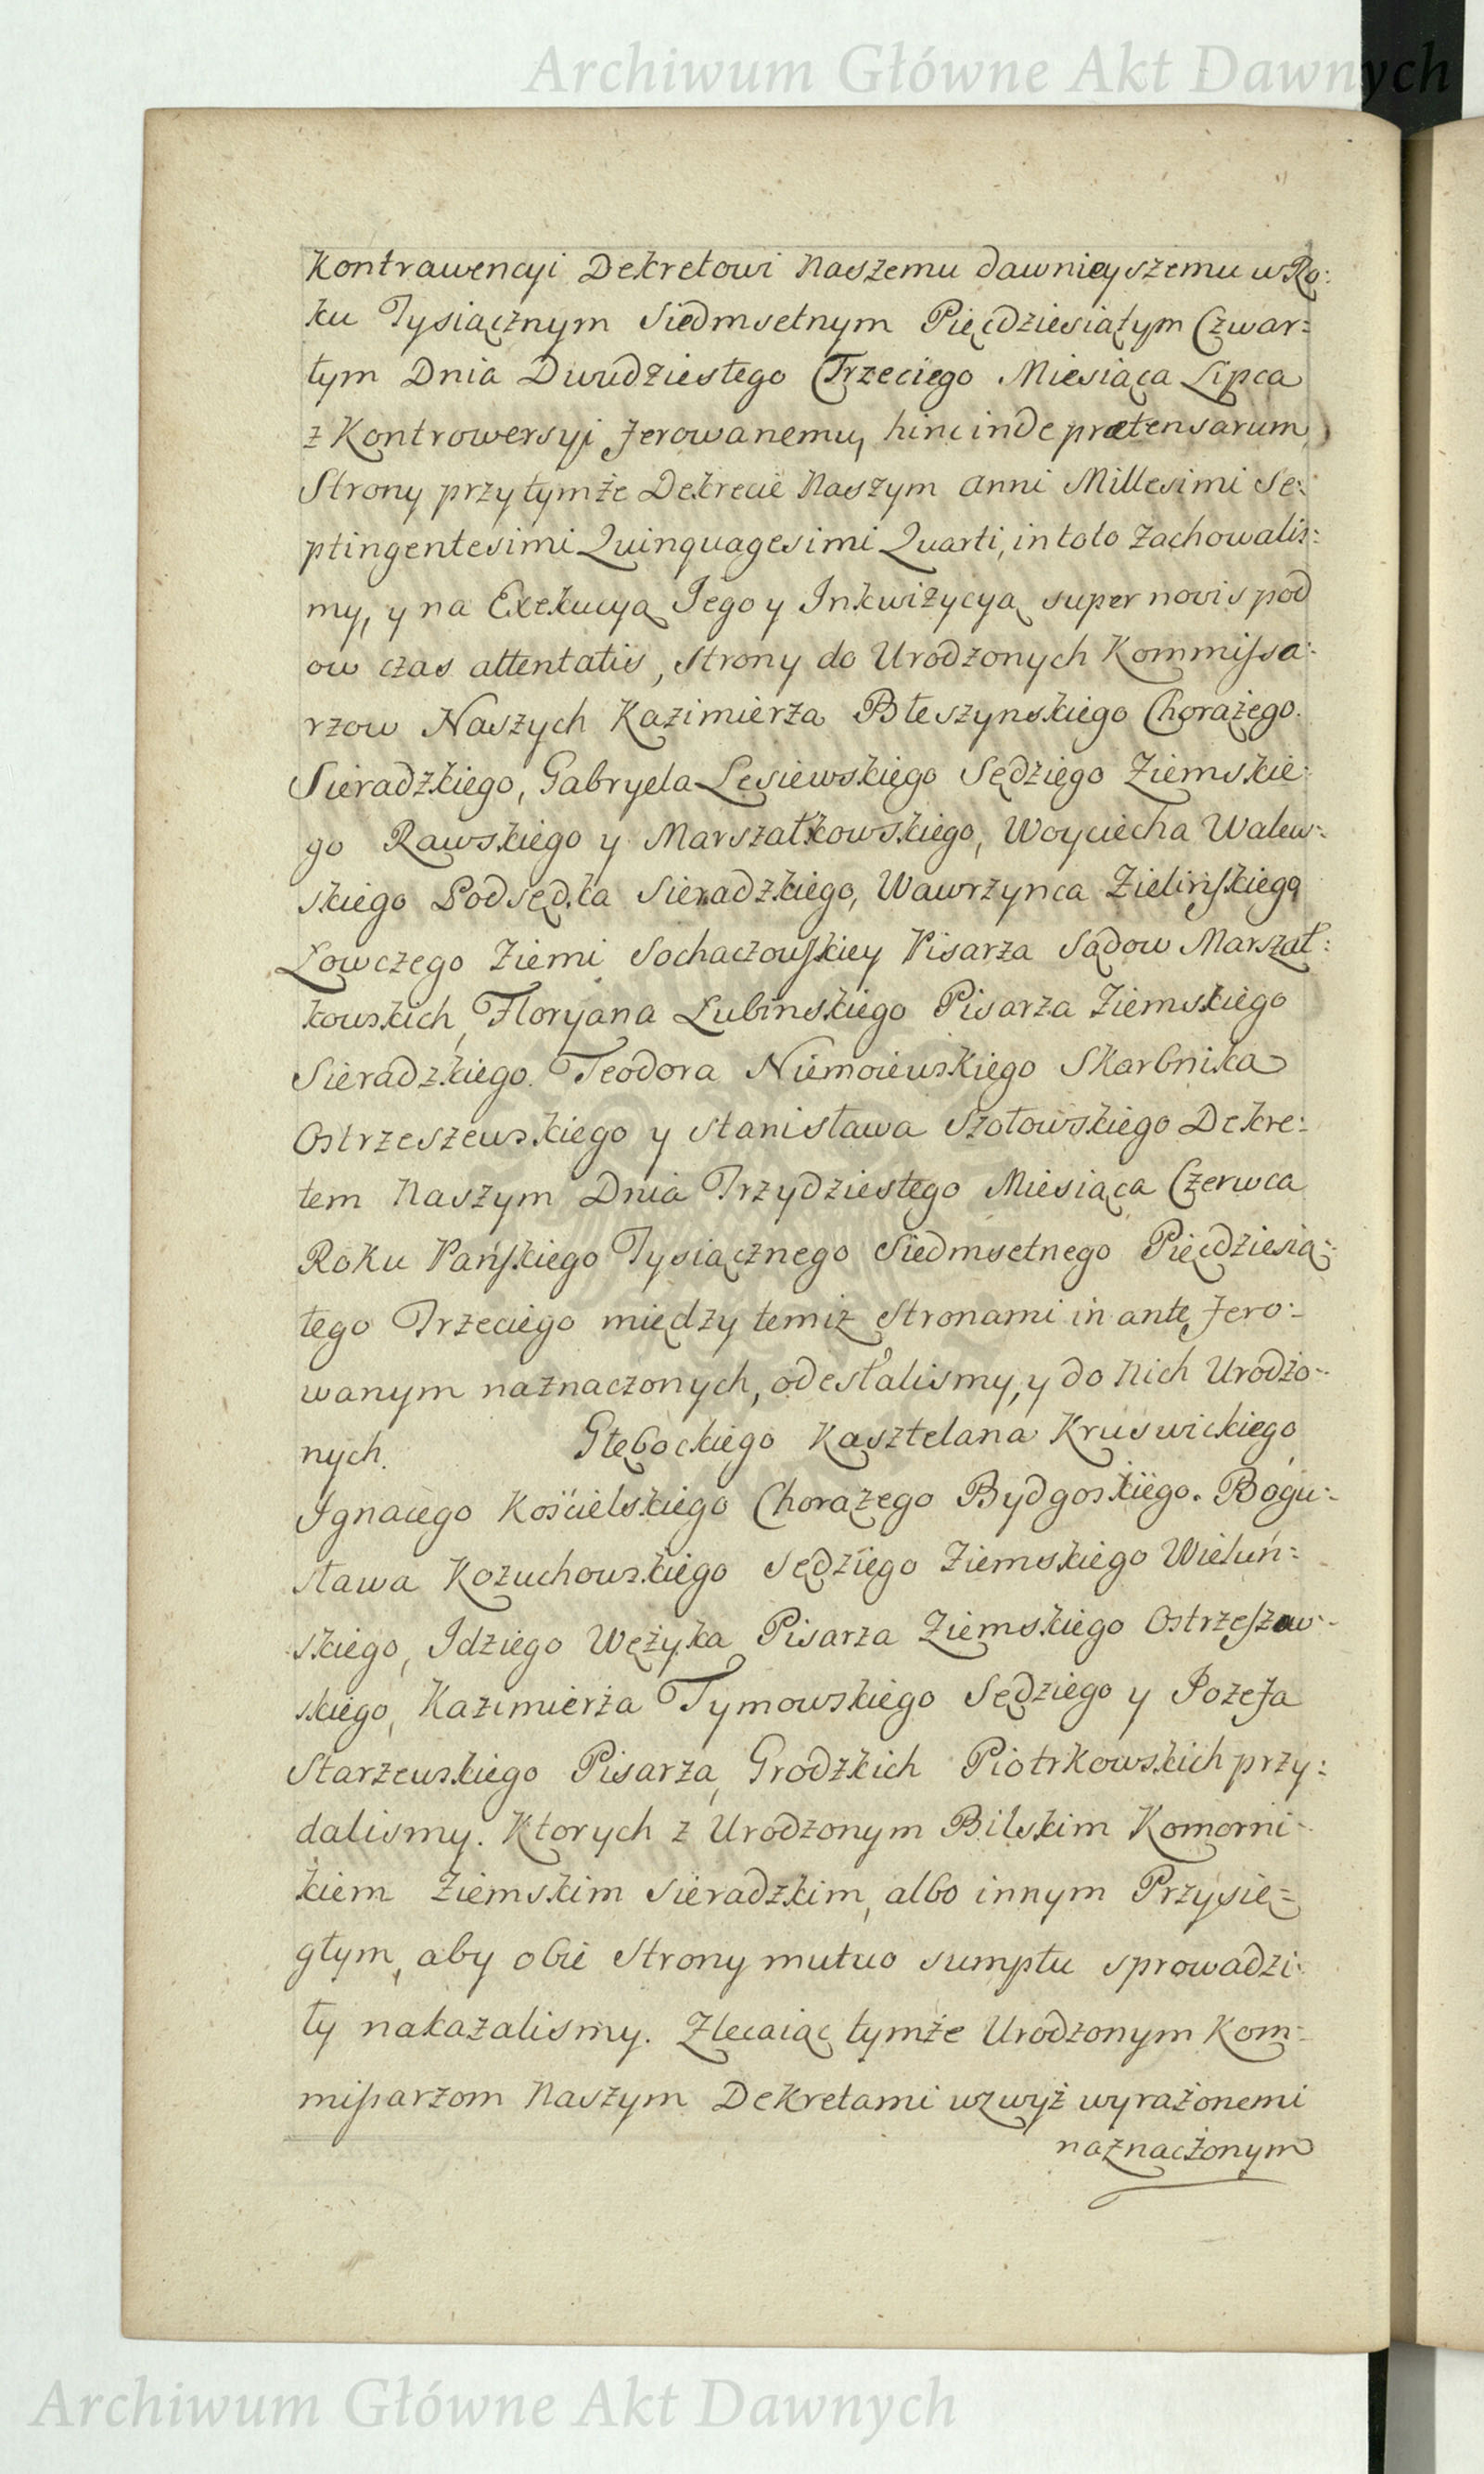 Archiwum Główne Akt Dawnych
Kontrawencyi Dekretowi Naszemu dawnieyszemu w Ro:
ku Tysiącznym Siedmsetnym Pięćdziesiątym Czwar:
tym Dnia Dwudziestego Trzeciego Miesiąca Lipca
z Kontrowersyi ferowanemu, hinc inde prætensarum
Strony przy tymże Dekrecie Naszym anni Millesimi Se:
ptingentesimi Quinquagesimi Quarti, in toto zachowalis:
my, y na Exekucyą Jego y Inkwizycyą super novis pod
ow czas attentatis, Strony do Urodzonych Kommissa:
rzow Naszych Kazimierza Błeszynskiego Chorążego
Sieradzkiego, Gabryela Lesiewskiego Sędziego Ziemskie:
go Rawskiego y Marszałkowskiego, Woyciecha Walew:
skiego Podsędka Sieradzkiego, Wawrzynca Zielińskiego
Łowczego Ziemi Sochaczowskiey Pisarza Sądow Marszał:
kowskich, Floryana Lubinskiego Pisarza Ziemskiego
Sieradzkiego. Teodora Niemoiewskiego Skarbnika
Ostrzeszewskiego y Stanisława Szołowskiego Dekre:
tem Naszym Dnia Trzydziestego Miesiąca Czerwca
Roku Pańskiego Tysiącznego Siedmsetnego Pięćdziesią:
tego Trzeciego między temiż Stronami in ante fero:
wanym naznaczonych, odesłalismy, y do Nich Urodzo:
nych. Głębockiego Kasztelana Kruswickiego,
Ignacego Kościelskiego Chorążego Bydgoskiego. Bogu:
sława Kożuchowskiego Sędziego Ziemskiego Wieluń:
skiego, Idziego Wężyka Pisarza Ziemskiego Ostrzeszew:
skiego, Kazimierza Tymowskiego Sędziego y Jozefa
Starzewskiego Pisarza, Grodzkich Piotrkowskich przy:
dalismy. Ktorych z Urodzonym Bilskim Komorni:
kiem Ziemskim Sieradzkim, albo innym Przysię:
głym, aby obie Strony mutuo sumptu sprowadzi:
ły nakazalismy. Zlecaiąc tymże Urodzonym Kom:
missarzom Naszym Dekretami wzwyż wyrażonemi
naznaczonym
Archiwum Główne Akt Dawnych